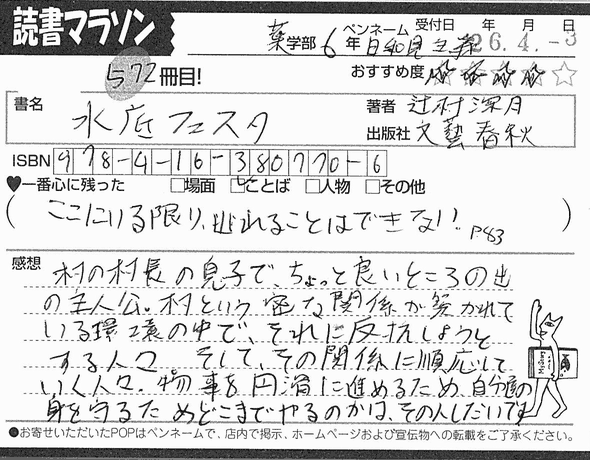 読書マラソン
ペンネーム 受付日 年 月 日
薬学部 6年 日和見主義 26.4.-3
572冊目! おすすめ度 ☆☆☆☆☆
書名 水底フェスタ
著者 辻村深月
出版社 文藝春秋
ISBN 978-4-16-380770-6
♥一番心に残った □場面 □ことば □人物 □その他
(ここにいる限り、逃れることはできない。P43)
感想
村の村長の息子で、ちょっと良いところの出
の主人公。村という密な関係が築かれて
いる環境の中で、それに反抗しようと
する人々 そして、その関係に順応して
いく人々。物事を円滑に進めるため、自分達の
身を守るためどこまでやるのかは、その人しだいです
●お寄せいただいたPOPはペンネームで、店内で掲示、ホームページおよび宣伝物への転載をご了承ください。